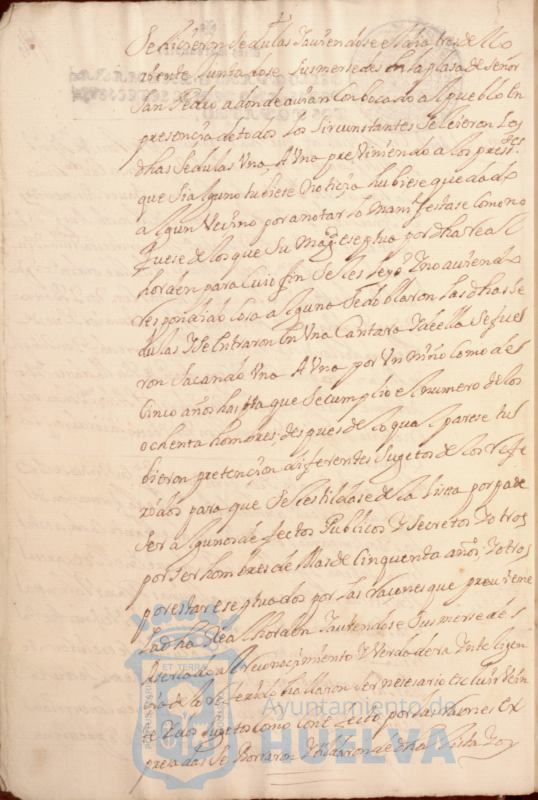 se hizieron sedulas Y auiendose el dia tres de No
viembre Juntadose sus mersedes en la plasa de señor
San Pedro a donde auian conbocado al pueblo En
presençia de todos los sircunstantes se leieron los
dhas sedulas Vna A Vna preViniendo a los press.tes
que si alguno tubiese notiçia hubiese quedado
algun Vezino por anotar lo manifestase como no
fuese de los que Su Mag.d eseptua por dha real
horden para cuio fin se les leyo Y no auiendo
respondido cosa alguna se doblaron las dhas se
dulas Y se entraron En Vna Cantara Y de ella se fue
ron sacando Vna A Vna por Un niño como de
sinco años hasta que se cumplio el numero de los
ochenta hombres; despues de lo qual parese tu
bieron pretençion diferentes sugetos de los refe
ridos para que se les tildase de la lista por pade
ser algunos defectos Publicos Y secretos Y otros
por ser hombres de Mas de sinquenta años, Y otros
por estar eseptuados por las rasones que preuiene
la dha Real horden Y auiendose sus mersedes
al reconosimiento Y Verdadera Ynteligen
çia de lo referido hallaron ser nesesario excluir Vein
te Y dos sugetos como con efecto por las rasones ex
presadas se borraron Y tildaron de dha lista Y oy
ET TERRAE
Ayuntamiento de
HUELVA